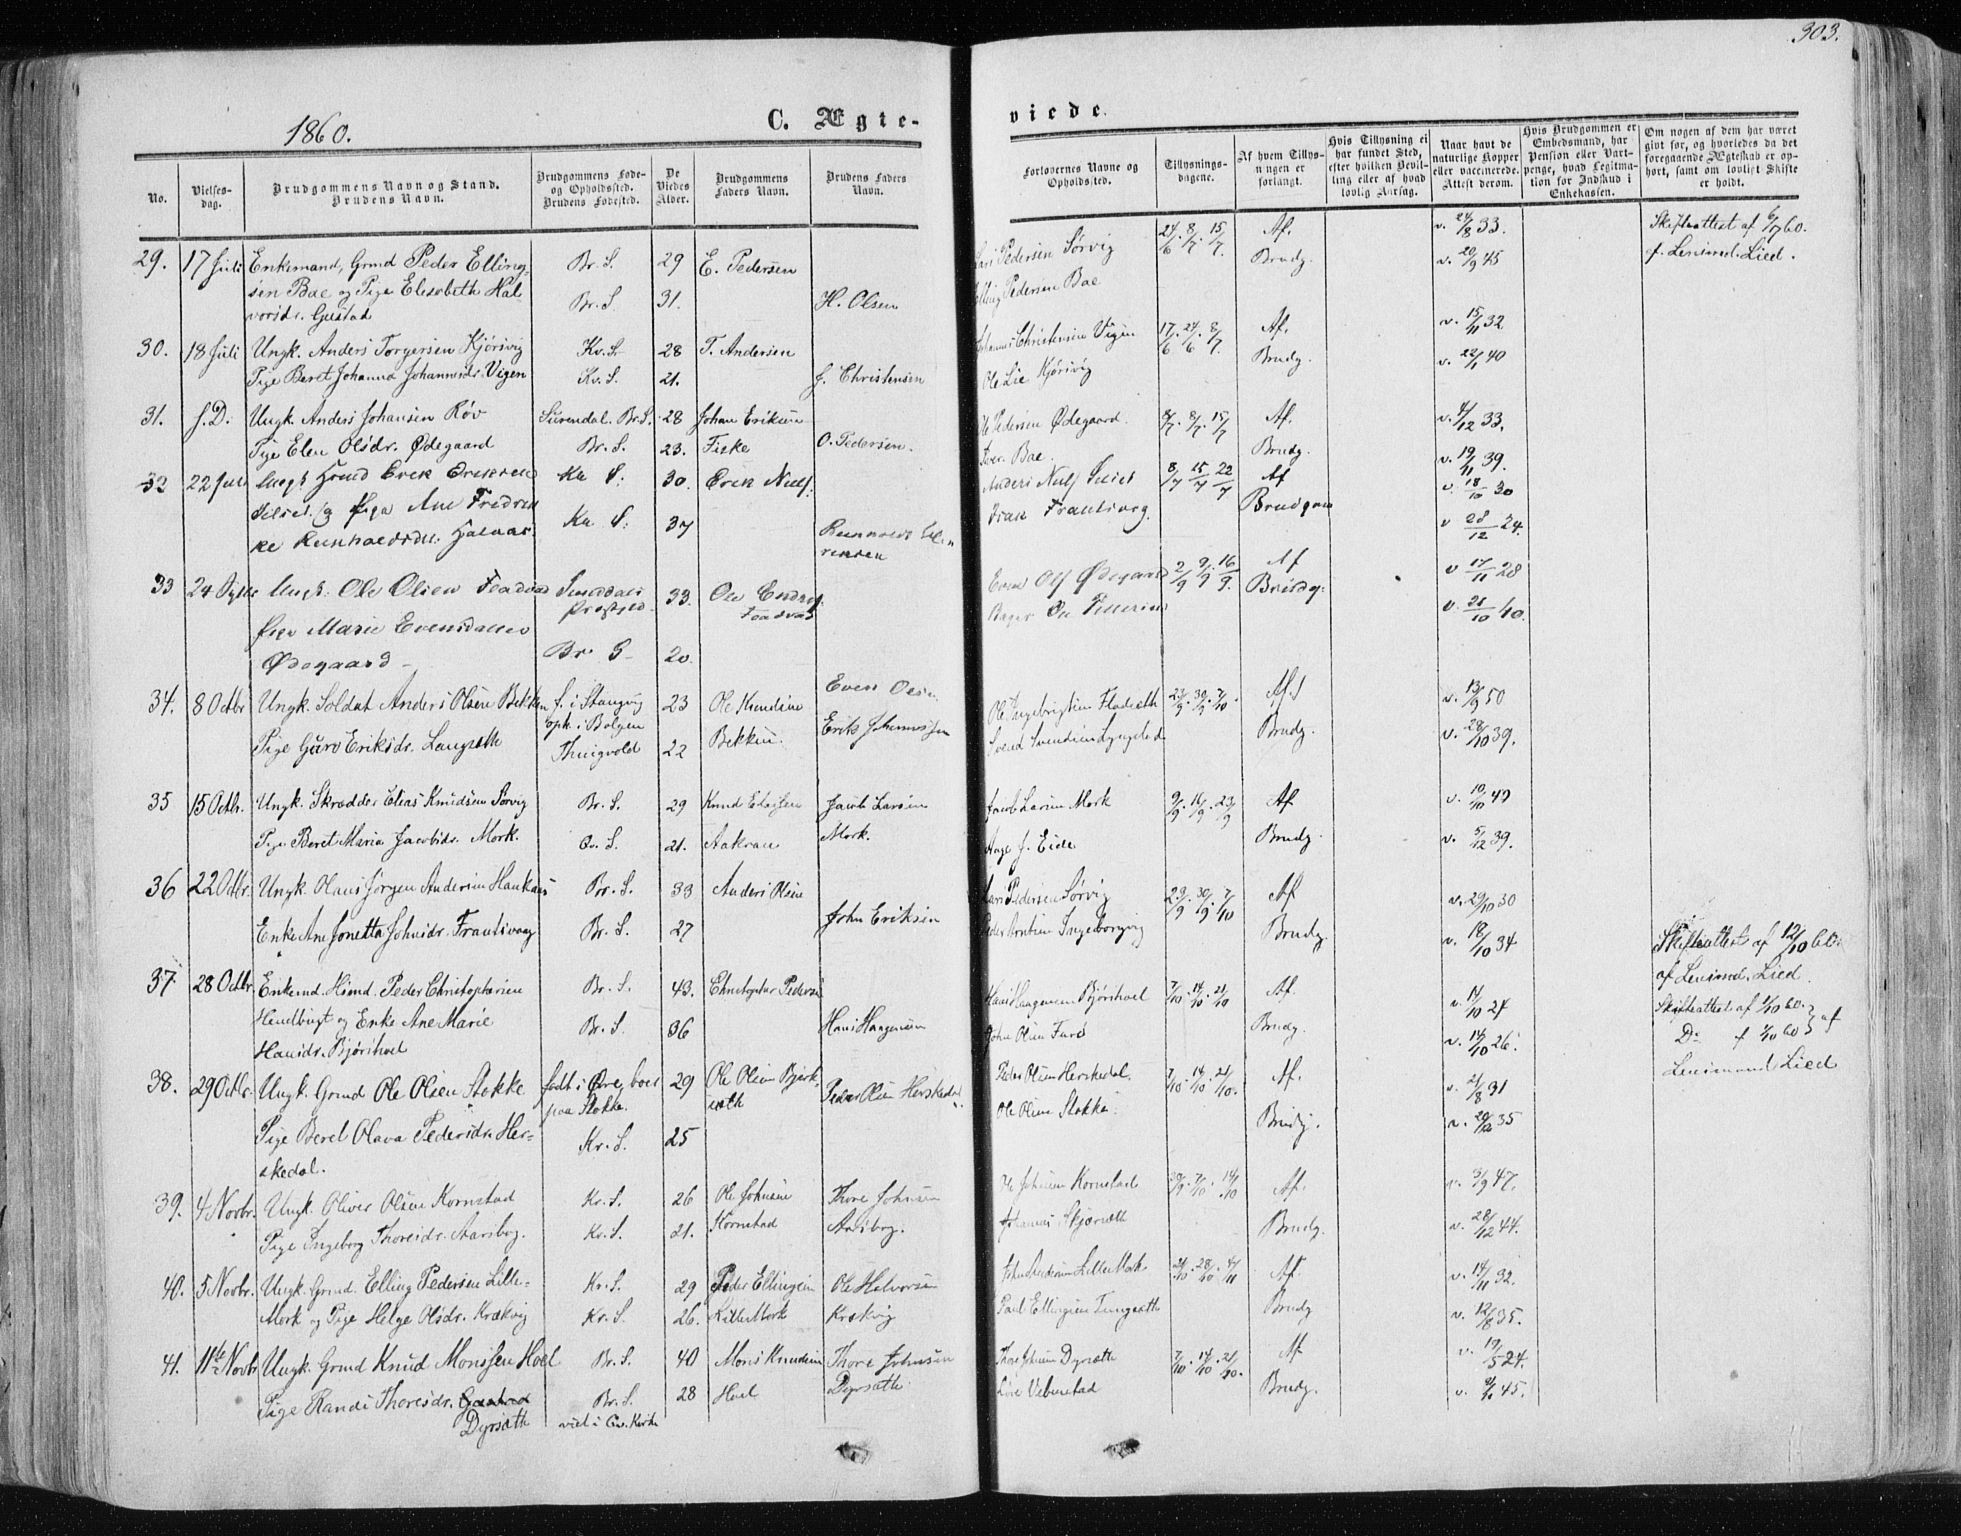 303.
1860.
C. Ægte-
viede.
No.
Vielses-
dag.
Brudgommens Navn og Stand.
Brudens Navn.
Brudgommens Føde-
og Opholdssted.
Brudens Fødested.
De
Viedes
Alder.
Brudgommens
Faders Navn.
Brudens Faders
Navn.
Forlovernes Navne og
Opholdssted.
Tillysnings-
dagene.
Af hvem Tillys-
ningen er
forlangt.
Hvis Tillysning ei
har fundet Sted,
efter hvilken Bevil-
ling eller af hvad
lovlig Aarsag.
Naar havt de
naturlige Kopper
eller vaccinerede.
Attest derom.
Hvis Brudgommen er
Embedsmand, har
Pension eller Vart-
penge, hvad Legitima-
tion for Indskud i
Enkekassen.
Om nogen af dem har været
givt før, og hvorledes da det
foregaaende Ægteskab er op-
hørt, samt om lovligt Skifte
er holdt.
29. 17 Juli Enkemand, Grmd Peder Elling- Br. S. 29 E. Pedersen
sen Bae og Pige Elisabeth Hal- Br. S 31. H. Olsen
vorsdr. Gustad
Pedersen Sørvig 24/6 8/7 15/7. Af. v. 24/8 33. Skifteattest af 6/7 60.
Pedersen Bae Brudg. v. 20/9 45 f. Lensmd. Lied.
30. 18 Juli Ungk. Anders Torgersen Kjørsvig Kv. S. 28 T. Andersen
Pige Beret Johanna Johannesdr. Vigen Kv. S. 21. J. Christensen
Johannes Christensen Vigen 17/6. 24/6. 8/7. Af. v. 15/11 32
Ole Lie Kjørsvig Brudg. v. 22/1 40
31. s. D. Ungk. Anders Johansen Røv Surendal. Br. S. 28 Johan Eriksen
Pige Elen Olsdr. Ødegaard Br. S. 23. Fiske O. Pedersen.
Pedersen Ødegaard. 8/7. 8/7. 15/7 Af. v. 4/12 33.
Iver Bae. Brudg. v. 19/11 39.
32 22 Juli Ungk Hsmd Erik Eriksen Kv S: 30. Erik Niels:
og Pige Ane Fredrik- Kv S: 37
ke Reinholdsdr.
Anders Niels 8/7 15/7 22/7 Af v. 18/10 30
Brudgom v 28/12 24.
33 24 Ungk: Ole Olsen 33. Ole
Pige Marie Evensdatter Br. S 20. Even Olsen
Ødegaard
Even Ols Ødegaard 2/9 9/9. 16/9. Af v 17/11 28
Ole Brudg. v. 21/10 40.
34. 8 Octbr Ungk. Soldat Anders Olsen Bekken f. i Stangvig 23 Ole Knudsen
oph. i Bolgen Bekken. Erik Johannessen
Pige Guro Eriksdr. Langseth Thingvold 22
Ole Ingebrigtsen Fladseth 23/9. 30/9. 7/10. Af. v. 13/9 50
Svend Svendsen Lyngstad Brudg. v. 28/10 39.
35 15 Octbr. Ungk. Skrædder Elias Knudsen Sørvig Br. S. 29 Knud Eliassen Jacob Larsen
Pige Beret Maria Jacobsdr. Mork. Qv. S. 21. Aakvam Mork.
Jacob Larsen Mork 9/9. 16/9. 23/9 Af v. 10/10 49
Aage J. Eide Brudg. v. 5/12 39.
36 22 Octbr. Ungk. Hans Jørgen Andersen Haukaas Br. S. 33 Anders Olsen
Enke Ane Jonetta Johnsdr. Frantsvaag Br. S. 27 John Eriksen
Lars Pedersen Sørvig 23/9. 30/9. 7/10 Af v. 29/10 30
Peder Arntsen Ingeborgvig Brudg. v. 18/10 34 Skifteattest af 12/10 60.
af Lensmd. Lied.
37. 28 Octbr. Enkemd. Hsmd. Peder Christophersen Br. S. 43. Christopher Pedersen
Hendbugt og Enke Ane Marie Br. S. 36 Hans Haagensen
Hansdr. Bjørshoel
Hans Haagensen Bjørshoel 7/10. 14/10. 21/10 Af. v. 14/10 24 Skifteattest af 1/10 60.
John Olsen Furs Brudg. v. 14/10 26. Do f 1/10 60 af
Lensmand Lied
38. 29 Octbr. Ungk. Grmd Ole Olsen Stokke født i Øre, boer 29 Ole Olsen Bjerk-
paa Stokke. seth Peder Olsen Herskedal.
Pige Beret Olava Pedersdr. Her- Kv. S. 25
skedal.
Peder Olsen Herskedal. 7/10. 14/10. 21/10. Af. v. 21/8 31
Ole Olsen Stokke. Brudg. v. 20/12 35
39. 4 Novbr. Ungk. Oliver Olsen Kornstad Kv. S. 26 Ole Johnsen Thore Johnsen
Pige Ingeborg Thoresdr. Aarsbog. Kv. S. 21. Kornstad Aarsbog.
Johnsen Kornstad 30/9. 7/10. 14/10 Af. v. 3/9 47.
Johannes Skjørseth Brudg. v. 28/12 44.
40. 5 Novbr. Ungk. Grmd. Elling Pedersen Lille- Kv. S. 29 Peder Ellingsen Ole Halvorsen
Mork og Pige Helge Olsdr. Krækvig Kv. S. 26. LilleMork Krækvig
John Andersen LilleMork 21/10. 28/10. 4/11 Af. v. 14/11 32.
Paul Ellingsen Tungseth Brudg v. 12/8 35.
41. 11te Novbr Ungk. Grmd Knud Monssen Hoel Br. S. 40 Mons Knudsen Thore Johnsen
Pige Randi Thoresdr. Br. S. 28 Hoel Dyrsæth
Dyrsæth viet i Qv. Kirke
Thore Johnsen Dyrsæth 7/10. 14/10. 21/10. Af v. 19/5 24.
Brudg. v. 9/10 45.